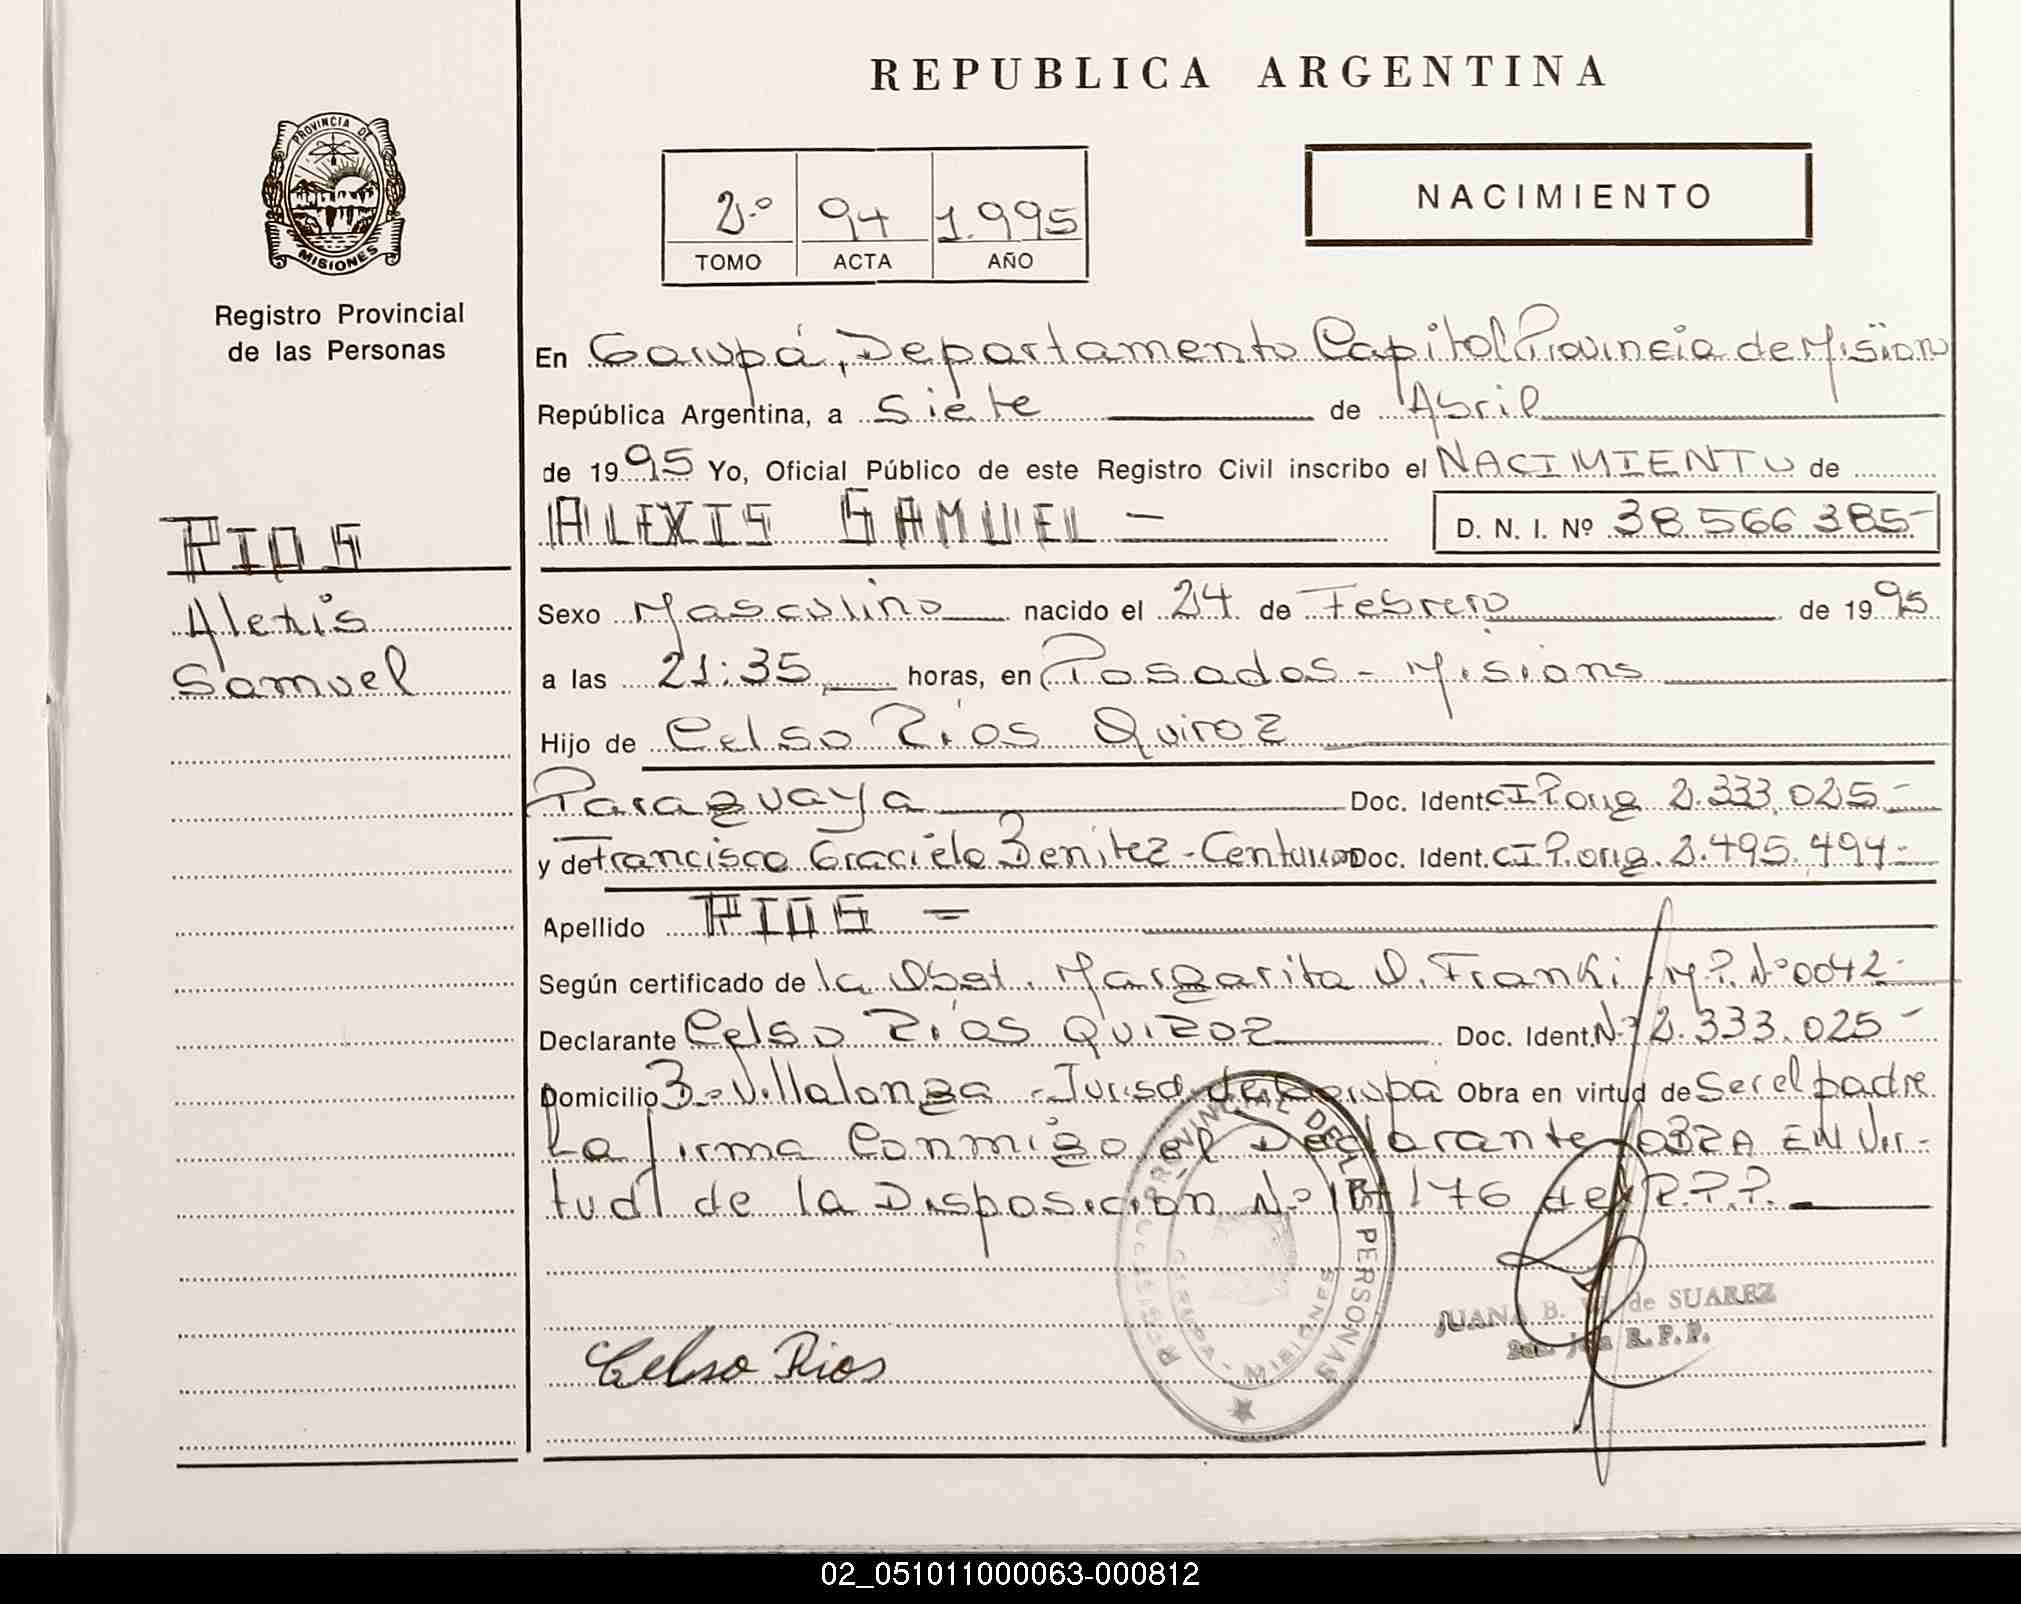 REPUBLICA ARGENTINA
PROVINCIA DE
MISIONES
Registro Provincial
de las Personas
2º
94
1.995
TOMO
ACTA
AÑO
NACIMIENTO
En Garupá, Departamento Capital Provincia de Mision
República Argentina, a Siete de Abril
de 1995 Yo, Oficial Público de este Registro Civil inscribo el NACIMIENTO de
ALEXIS SAMUEL -
D. N. I. Nº 38.566.385-
RIOS
Alexis
Samuel
Sexo Masculino nacido el 24 de Febrero de 1995
a las 21:35 horas, en Posadas - Misions
Hijo de Celso Ríos Quiroz
Paraguaya Doc. Ident. CI Parag 2.333.025-
y de Francisca Graciela Benitez - Doc. Ident. CI Parag. 2.495.494-
Apellido RIOS -
Según certificado de la Obst. Margarita O. Franki M.P. Nº 0042-
Declarante Celso Ríos Quiroz Doc. Ident. Nº 2.333.025-
Domicilio Bº Villalonga - Jurisd. de Garupá Obra en virtud de Ser el padre
La firma Conmigo el Declarante OBRA EN Vir-
tud de la Disposición Nº 176 del R.P.P.
REGISTRO PROVINCIAL DE LAS PERSONAS
MISIONES
JUANA B. de SUAREZ
R.P.P.
Celso Rios
02_051011000063-000812